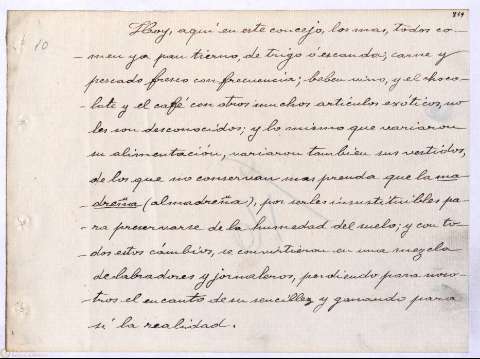 814
10
Hoy, aquí en este concejo, los mas, todos co-
-men ya pan tierno, de trigo ó escanda; carne y
pescado fresco con frecuencia; beben vino, y el choco-
-late y el café con otros muchos artículos exóticos, no
les son desconocidos; y lo mismo que variaron
su alimentación, variaron tambien sus vestidos,
de los que no conservan mas prenda que la ma
dreña (almadreña), por serles insustituibles pa-
ra preservarse de la humedad del suelo; y con to-
dos estos cámbios, se convirtieron en una mezcla
de labradores y jornaleros, perdiendo para noso-
-tros el encanto de su sencillez y ganando para
si la realidad.